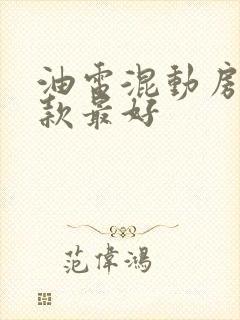 油雷混動房
款最好
范偉鴻